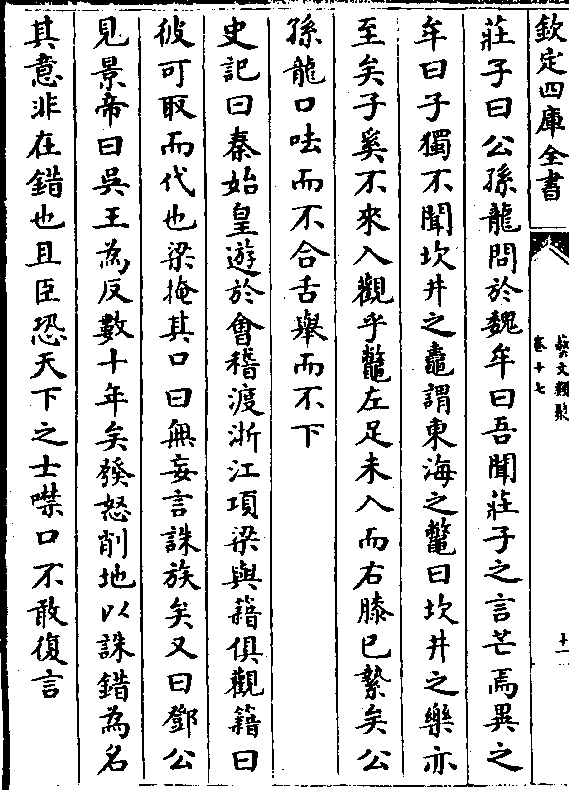 欽定四庫全書
藝文類聚
卷十七
十一
莊子曰公孫龍問於魏牟曰吾聞莊子之言芒焉異之
牟曰子獨不聞坎井之鼃謂東海之鼈曰坎井之樂亦
至矣子奚不來入觀乎鼈左足未入而右膝已縶矣公
孫龍口呿而不合舌舉而不下
史記曰秦始皇遊於會稽渡浙江項梁與籍俱觀籍曰
彼可取而代也梁掩其口曰無妄言誅族矣又曰鄧公
見景帝曰吳王為反數十年矣發怒削地以誅錯為名
其意非在錯也且臣恐天下之士噤口不敢復言